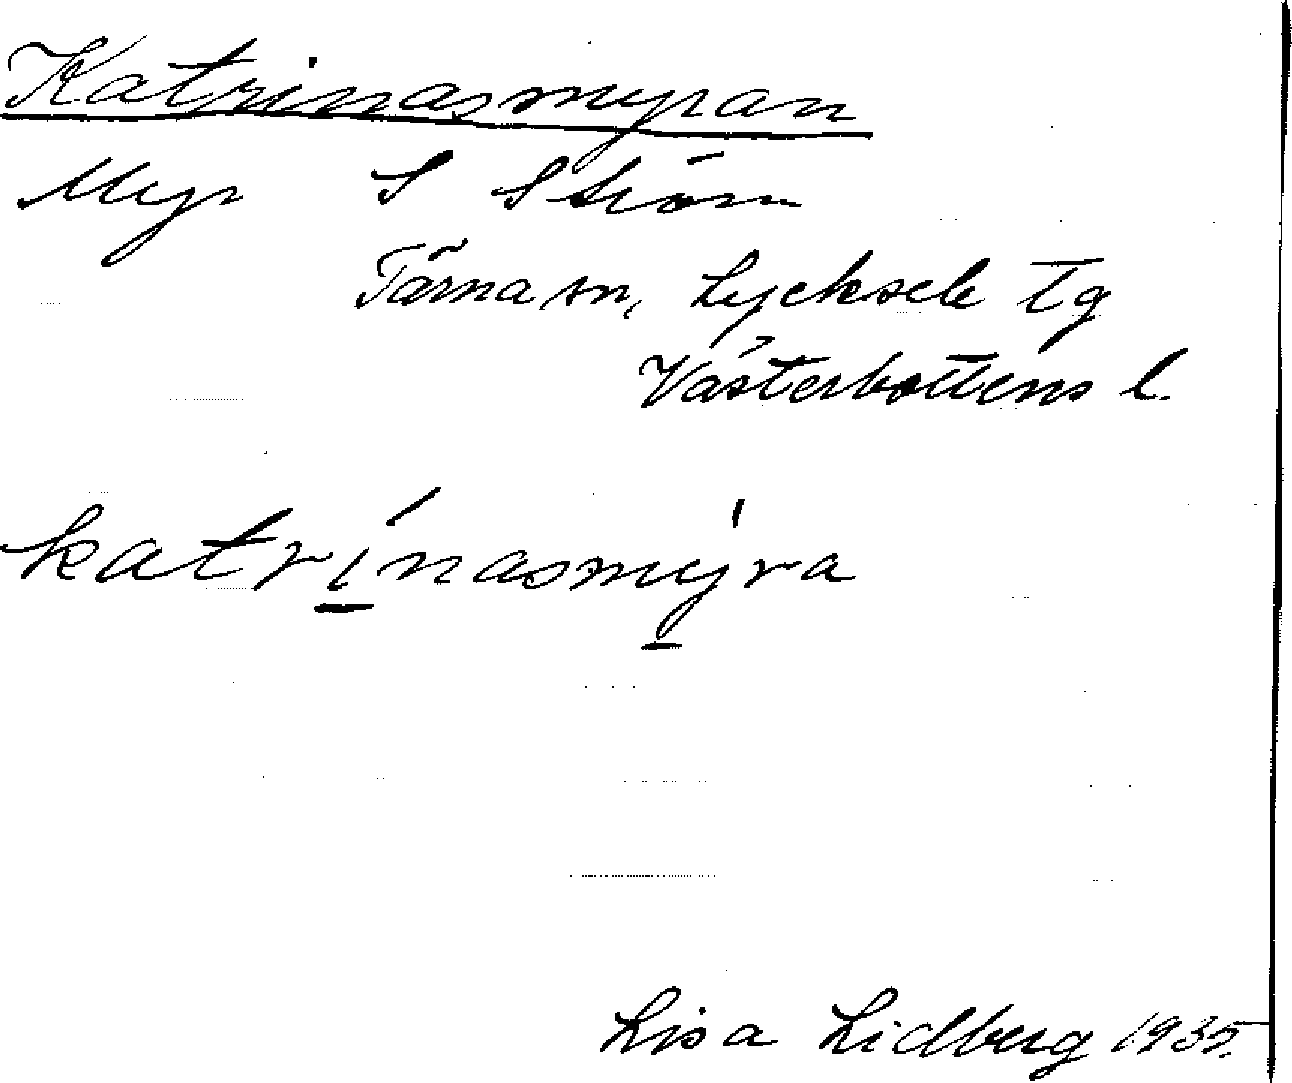 Katrinasmyran
Myr S Ström
Tärna sn, Lycksele Tg
Västerbottens l.
katrínasmýra
Lisa Lidberg 1935.